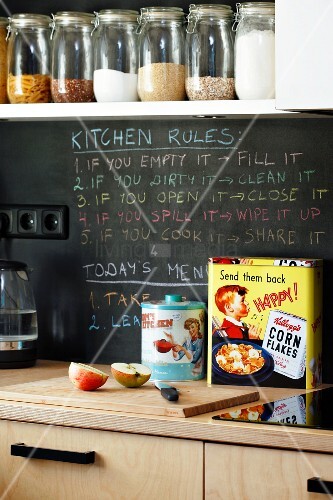 KITCHEN RULES:
1. IF YOU EMPTY IT → FILL IT
2. IF YOU DIRTY IT → CLEAN IT
3. IF YOU OPEN IT → CLOSE IT
4. IF YOU SPILL IT → WIPE IT UP
5. IF YOU COOK IT → SHARE IT
TODAY'S MENU
1. TAKE
2. LEA
Send them back
HAPPY!
Kellogg's
CORN
FLAKES